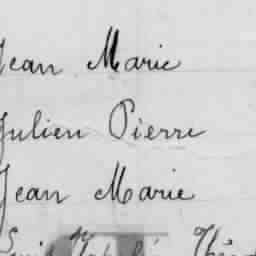 Jean Marie
Julien Pierre
Jean Marie